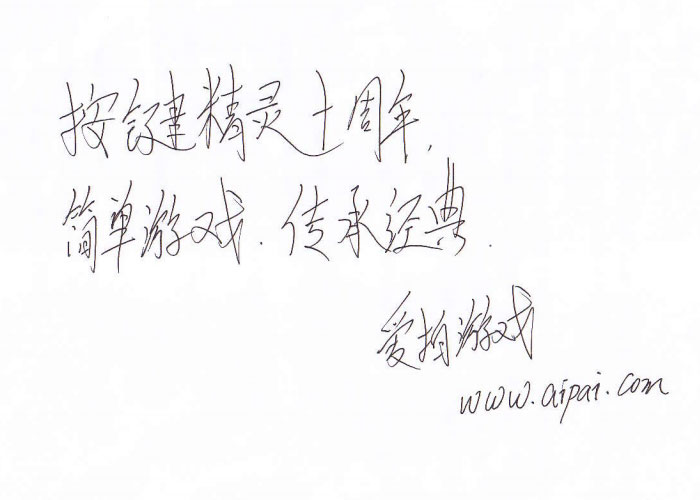 按键精灵十周年,
简单游戏.传承经典.
爱拍游戏
www.aipai.com